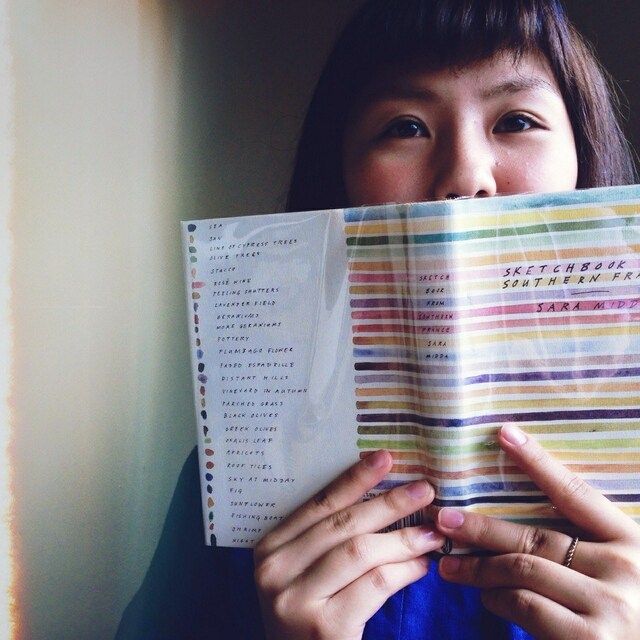 SEA
SKY
LINE OF CYPRESS TREES
OLIVE TREES
STUCCO
ROSÉ WINE
PEELING SHUTTERS
LAVENDER FIELD
GERANIUMS
MORE GERANIUMS
POTTERY
PLUMBAGO FLOWER
FADED ESPADRILLE
DISTANT HILLS
VINEYARD IN AUTUMN
PARCHED GRASS
BLACK OLIVES
GREEN OLIVES
GARLIC LEAF
APRICOTS
ROOF TILES
SKY AT MIDDAY
FIG
SUNFLOWER
FISHING BOAT
NIGHT
SKETCH
BOOK
FROM
SOUTHERN
FRANCE
SARA
MIDDA
SKETCHBOOK
SOUTHERN FRA
SARA MIDD